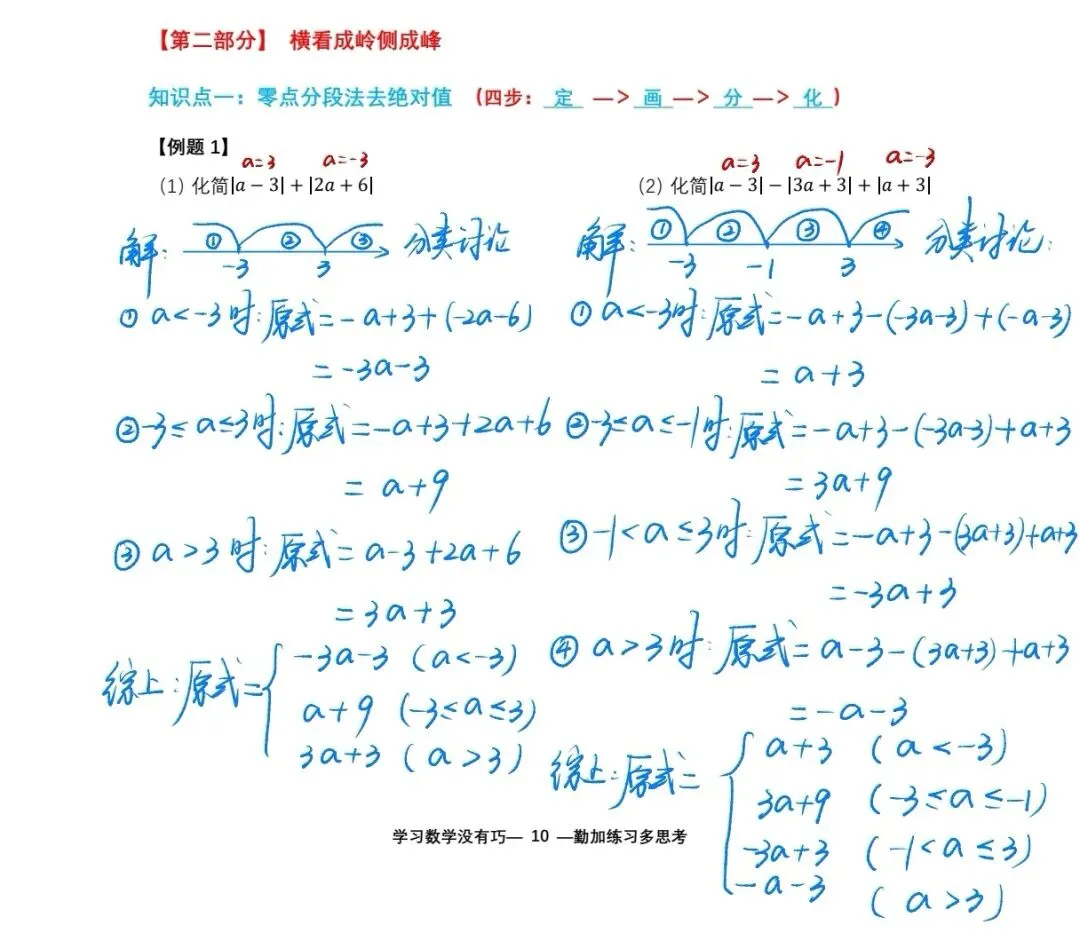 【第二部分】 横看成岭侧成峰
知识点一：零点分段法去绝对值 (四步： 定 —> 画 —> 分 —> 化 )
【例题 1】
a=3 a=-3
(1) 化简|a − 3| + |2a + 6|
解: ① ② ③ 分类讨论
-3 3
① a<-3时:原式=-a+3+(-2a-6)
=-3a-3
②-3≤a≤3时:原式=-a+3+2a+6
= a+9
③ a>3时:原式=a-3+2a+6
=3a+3
综上:原式={
-3a-3 (a<-3)
a+9 (-3≤a≤3)
3a+3 (a>3)
a=3 a=-1 a=-3
(2) 化简|a − 3| − |3a + 3| + |a + 3|
解: ① ② ③ ④ 分类讨论:
-3 -1 3
① a<-3时:原式=-a+3-(-3a-3)+(-a-3)
= a+3
②-3≤a≤-1时:原式=-a+3-(-3a-3)+a+3
=3a+9
③-1<a≤3时:原式=-a+3-(3a+3)+a+3
=-3a+3
④ a>3时:原式=a-3-(3a+3)+a+3
=-a-3
综上:原式={
a+3 (a<-3)
3a+9 (-3≤a≤-1)
-3a+3 (-1<a≤3)
-a-3 (a>3)
学习数学没有巧— 10 —勤加练习多思考